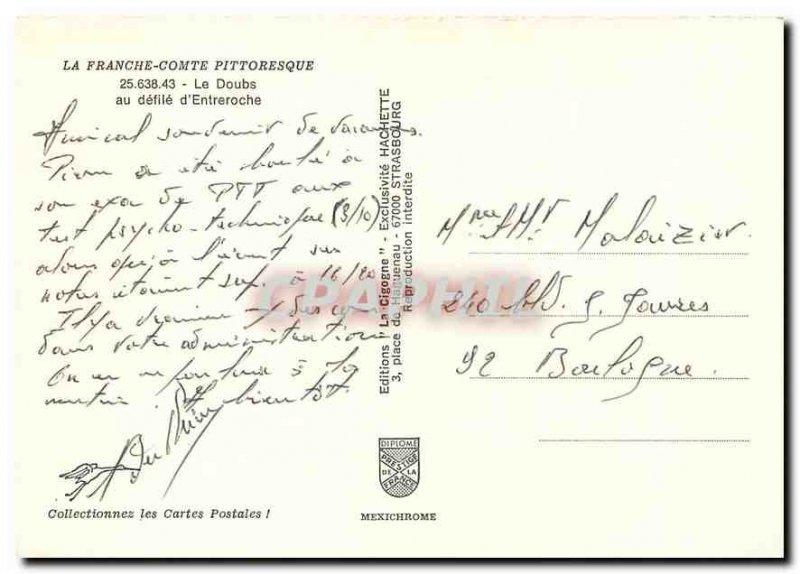 LA FRANCHE-COMTE PITTORESQUE
25.638.43 - Le Doubs
au défilé d'Entreroche
Amical souvenir de vacances.
Pierre a été boulé à
son exa de PTT aux
test psycho-technique (9/10)
alors qu'à l'écrit ses
notes étaient sup. à 16/20
Il y a vraiment des
dans votre administration
On en a
Editions "La Cigogne" - Exclusivité HACHETTE
3, place de Haguenau - 67000 STRASBOURG
Reproduction interdite
CPAPHIL
Mme & Mr Malaizier
240 Bld. J. Jaurès
92 Boulogne.
DIPLOME
PRESTIGE
DE LA
FRANCE
Collectionnez les Cartes Postales !
MEXICHROME